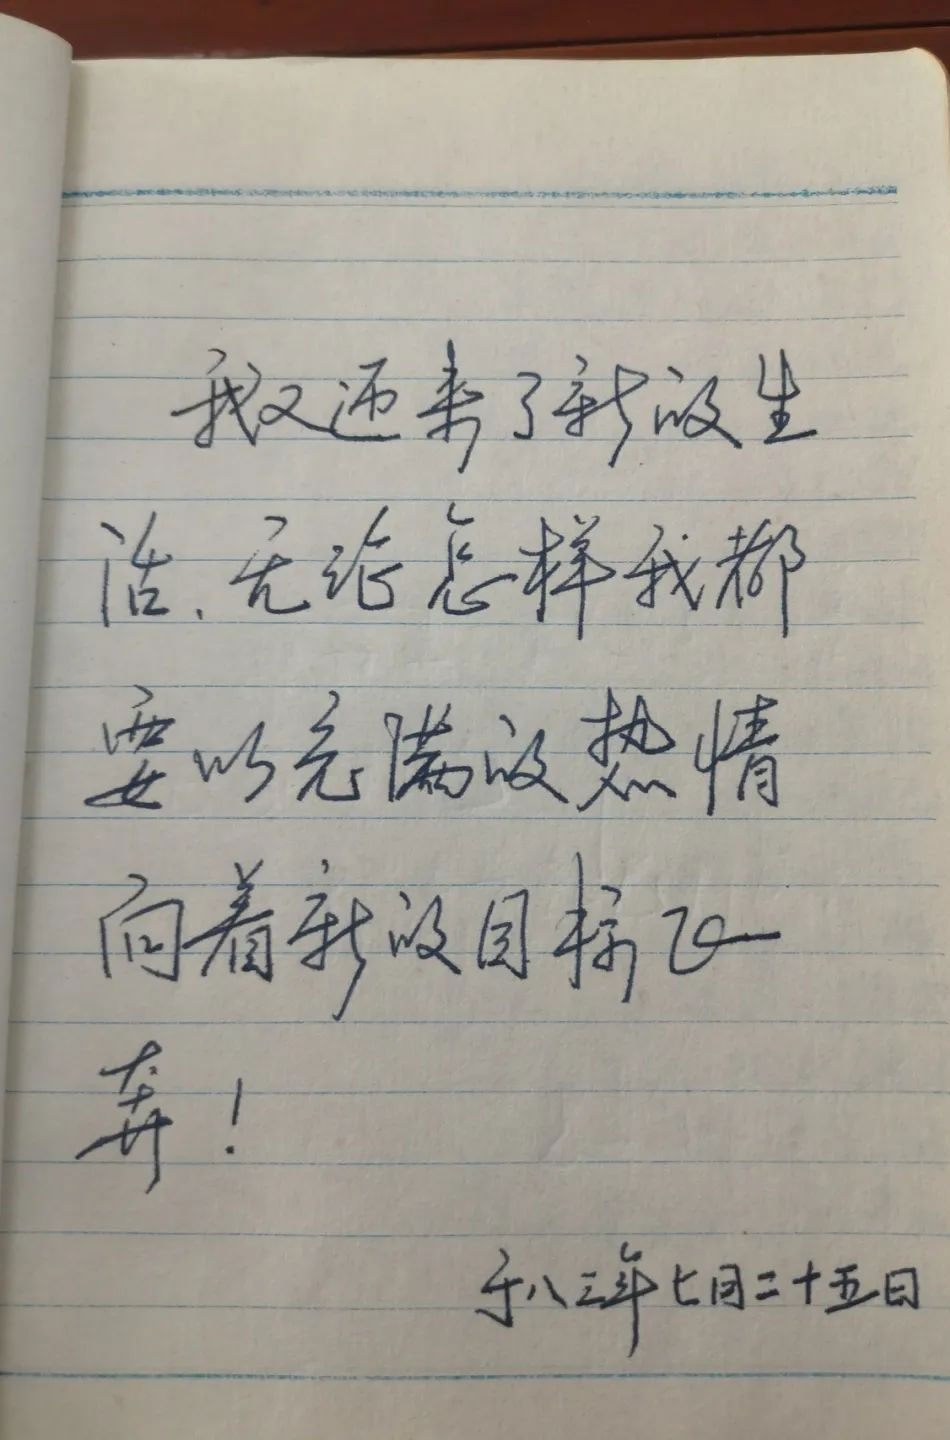 我又迎来了新的生
活、无论怎样我都
要以充满的热情
向着新的目标飞
奔！
于八三年七月二十五日